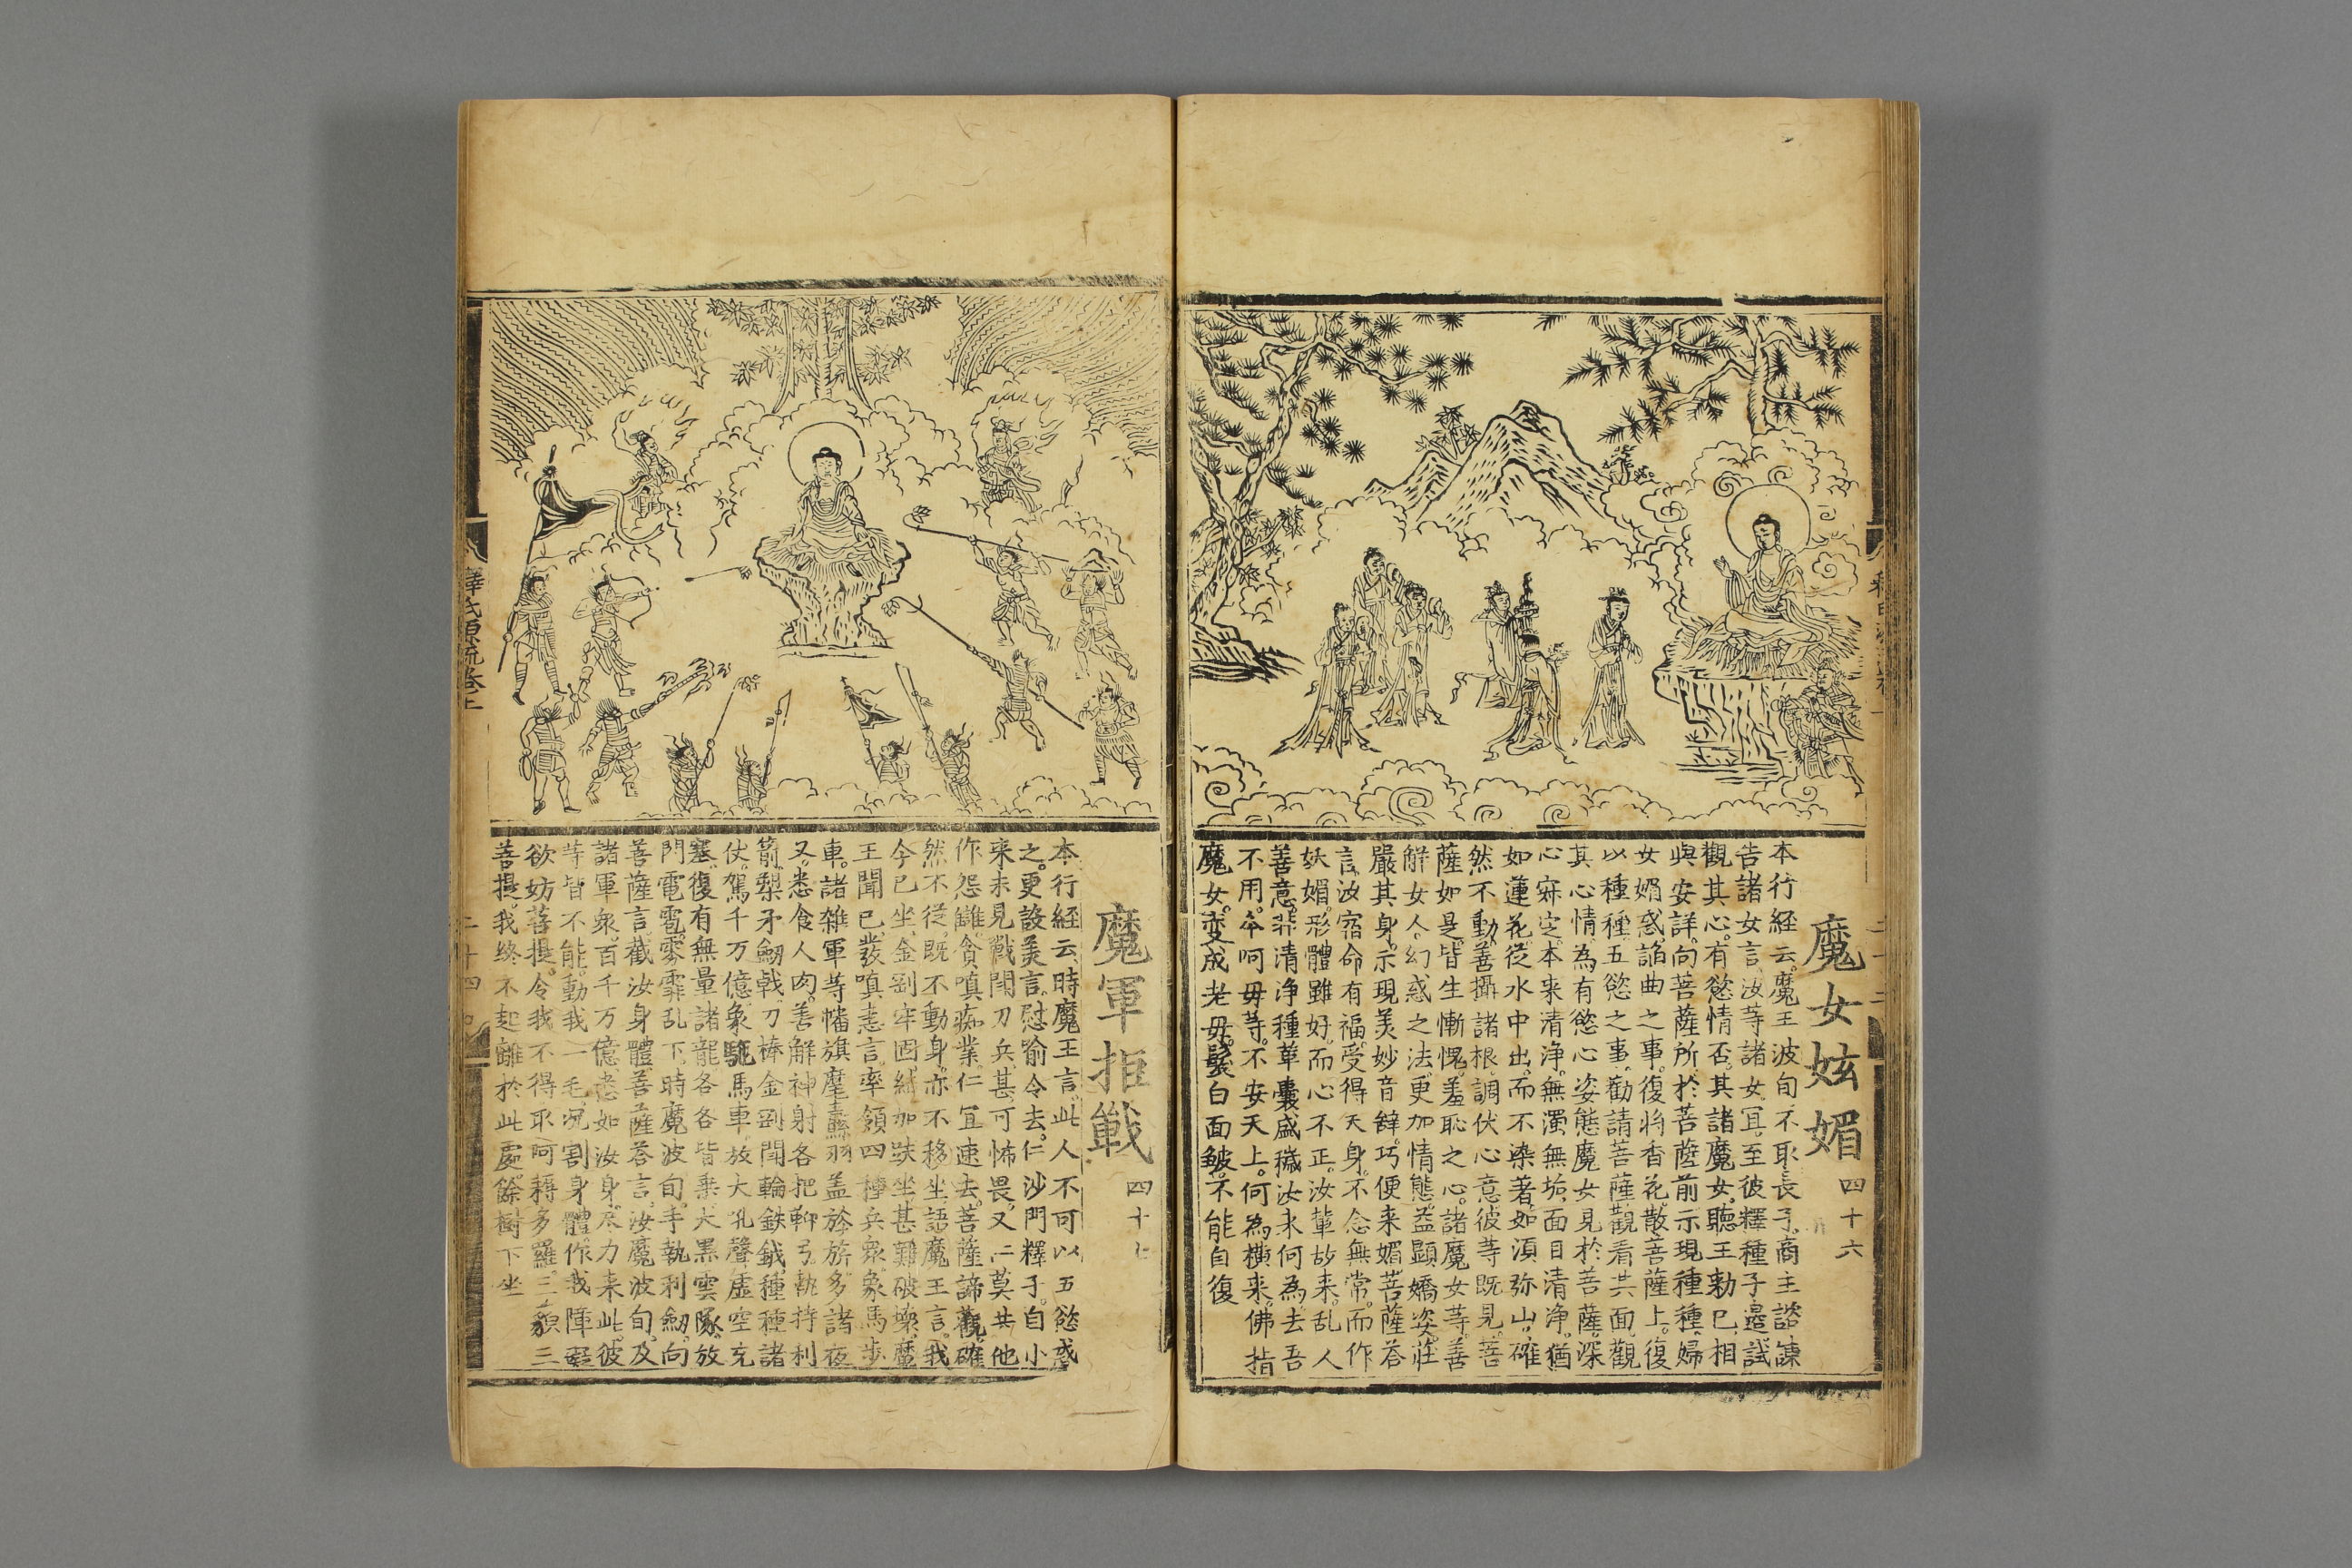 魔女妶媚 四十六
本行経云。魔王波旬、不取長子、商主諮諫
告諸女言、汝等諸女、冝至彼釋種子邉、試
觀其心。有慾情否。其諸魔女。聽王勅巳、相
與安詳。向菩薩所、於菩薩前、示現種種、婦
女媚惑、諂曲之事。復將香花、散菩薩上。復
以種種、五慾之事、勸請菩薩、觀看其面、觀
其心情、為有慾心、姿態魔女、見於菩薩。深
心寂定。本来清浄、無濁無垢、面目清浄。猶
如蓮花。從水中出。而不染著。如湏弥山。確
然不動。善攝諸根。調伏心意、彼等既見。菩
薩如是。皆生慚愧。羞恥之心。諸魔女等、善
解女人。幻惑之法。更加情態。益顯嬌姿。莊
嚴其身。示現羙妙音辤。巧便来媚。菩薩荅
言。汝宿命有福。受得天身。不念無常。而作
妖媚。形體雖好。而心不正。汝輩故来。乱人
善意。非清浄種。革囊盛穢。汝来何為。去吾
不用。夲呵毋等。不安天上。何為横来。佛指
魔女。变成老毋。髮白面皺。不能自復
魔軍拒戰 四十七
本行経云、時魔王言、此人不可以五慾惑
之。更設羙言。慰喻令去。仁沙門釋子。自小
来未見戰闘刀兵、甚可怖畏。又二莫共他
作怨讎。貪嗔痴業。仁冝速去。菩薩諦觀、確
然不從。既不動身、亦不移坐、語魔王言。我
今已坐、金剛牢固。結加趺坐。甚難破壞。魔
王聞已。發嗔恚言、率領四種兵衆。象馬步
車。諸雜軍等、幡旗麾纛、羽盖旍旂。多諸夜
叉。悉食人肉。善解神射、各把鞆弓。執持利
箭、犁矛劒戟、刀棒金剛。闘輪鉄鉞。種種諸
仗。駕千万億象駞馬車、放大吼聲。虛空充
塞。復有無量諸龍。各各皆乗大黒雲隊。放
門電雹雰霏乱下。時魔波旬。手執利劒。向
菩薩言。截汝身體。菩薩荅言。汝魔波旬。及
諸軍衆。百千万億、悉如汝身。尽力来此。彼
等皆不能動我一毛。况割身體。作我障碍
欲妨菩提。令我不得取阿耨多羅三藐三
菩提。我終不起離於此處。餘樹下坐
釋氏源流卷上
二十四